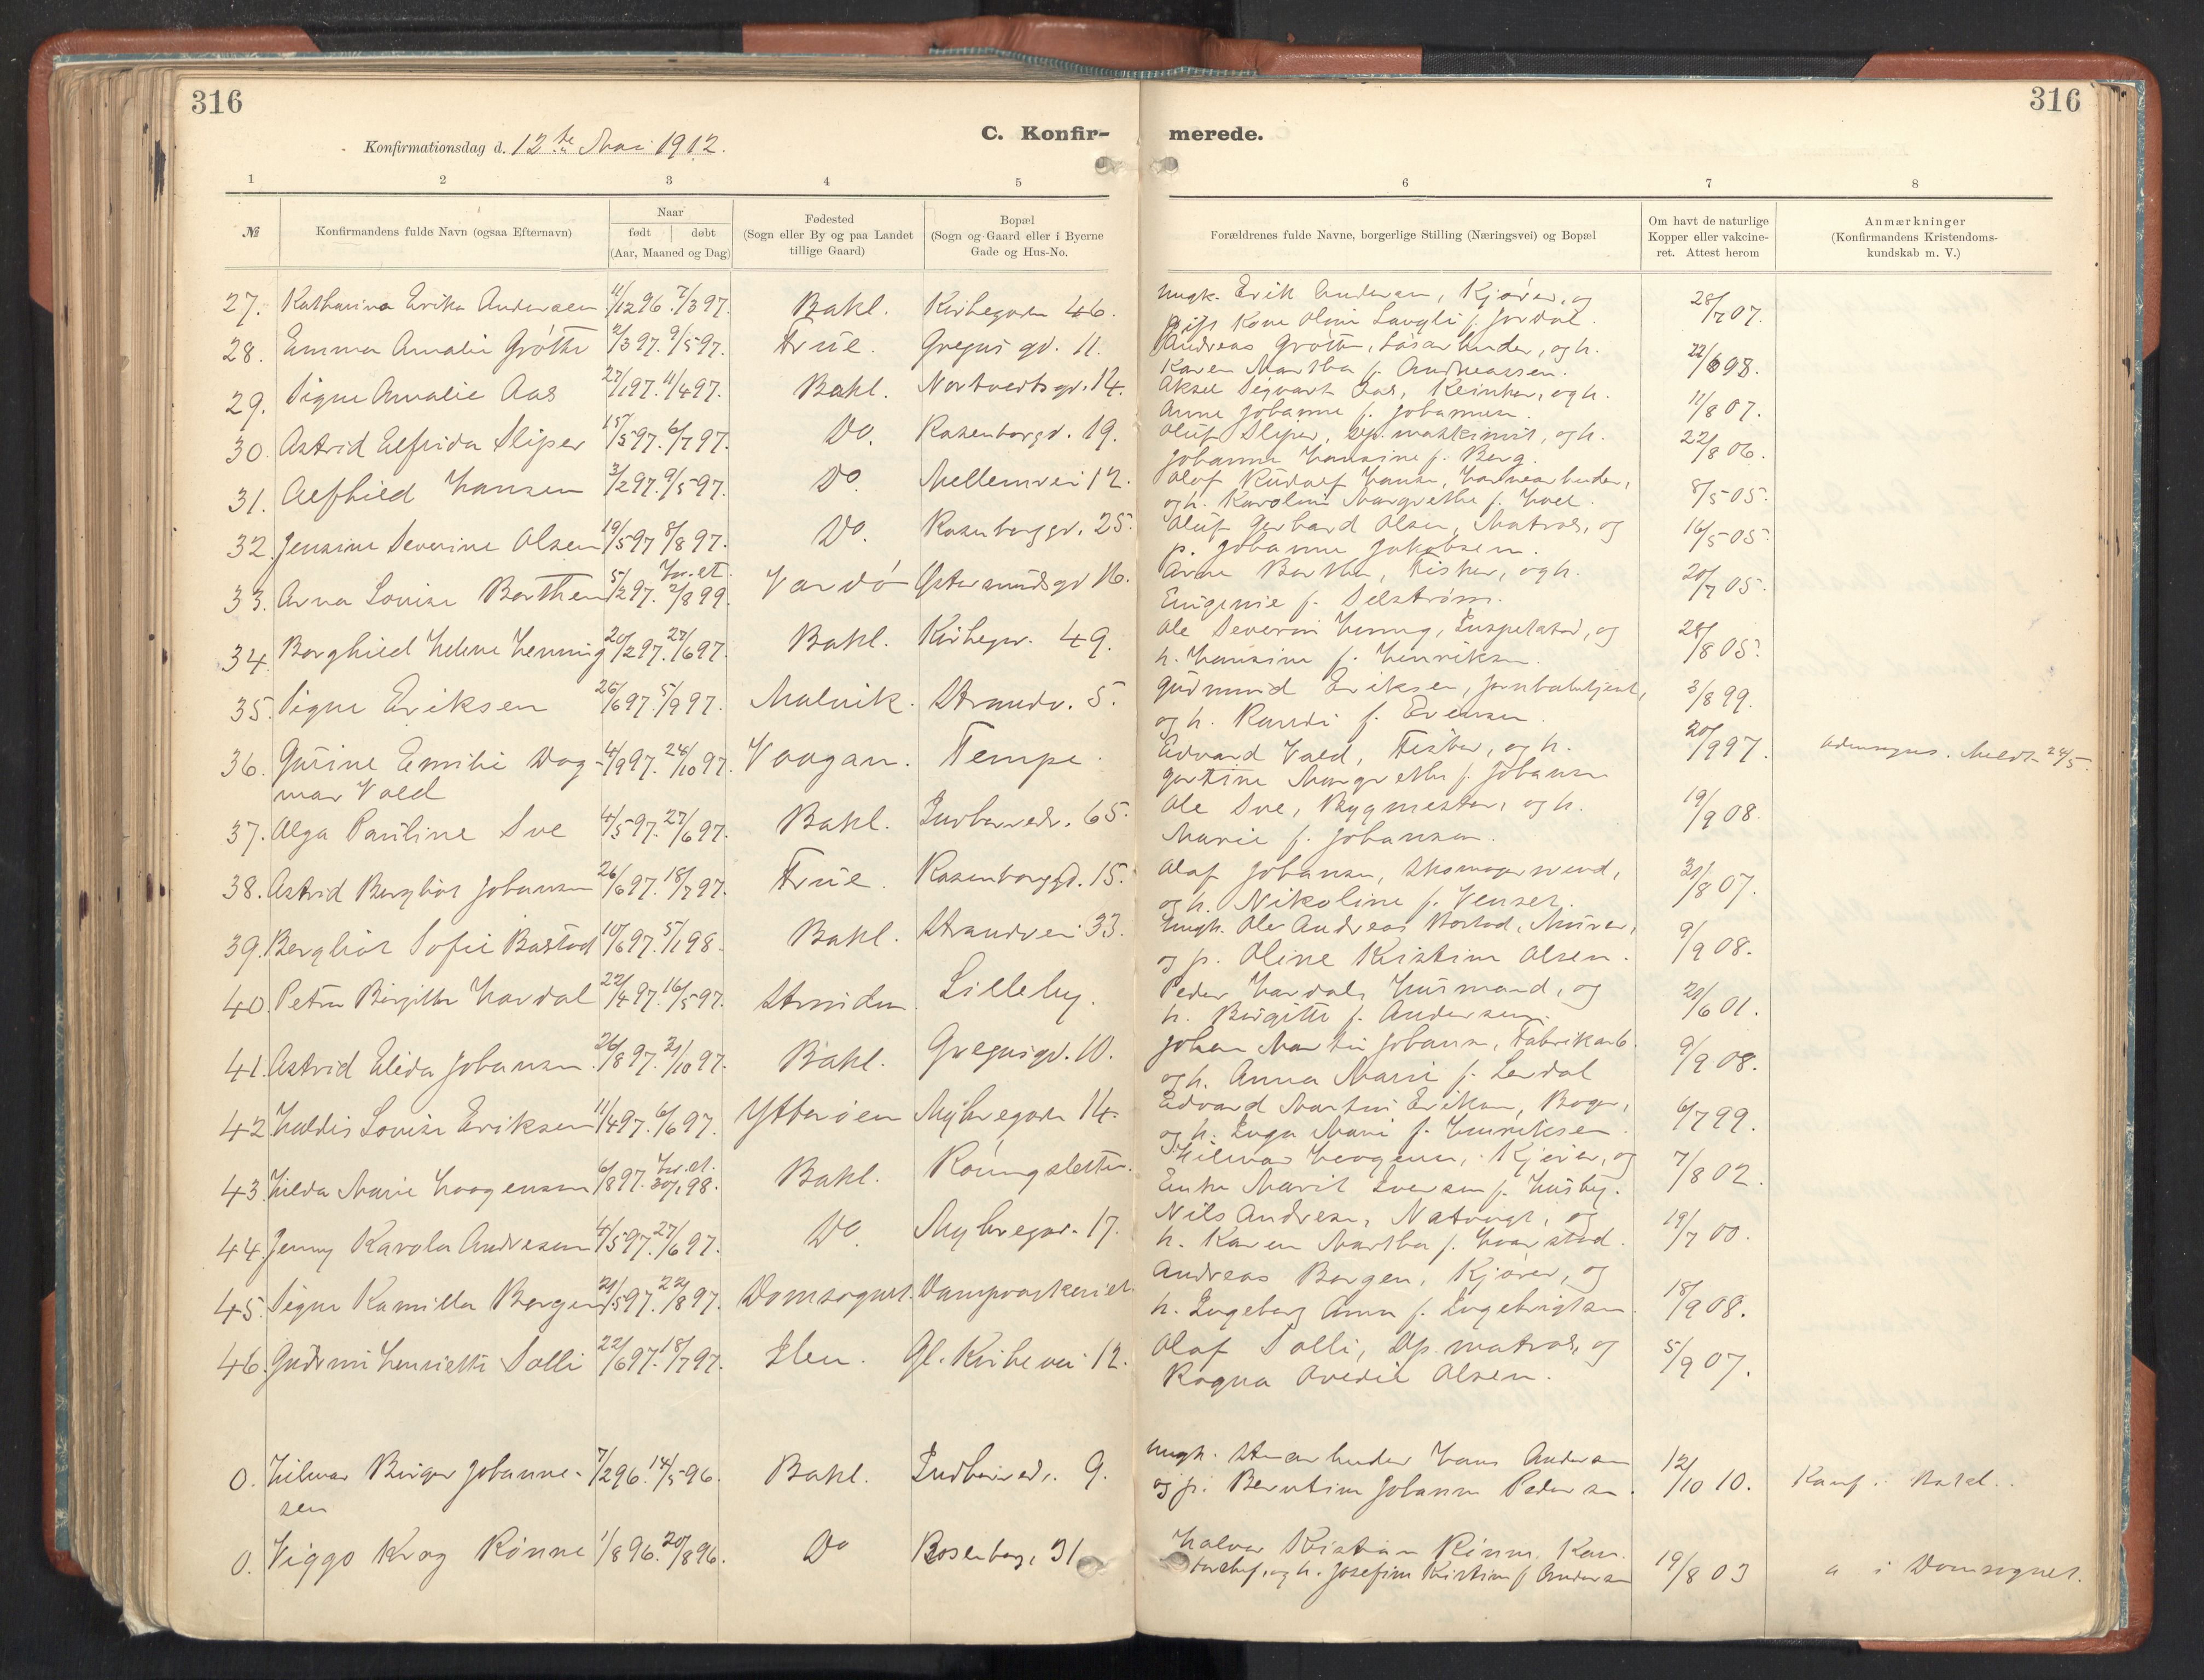 316
316
C. Konfir-
merede.
Konfirmationsdag d. 12te Mai 1912.
1 2 3 4 5 6 7 8
№
Konfirmandens fulde Navn (ogsaa Efternavn)
Naar
født døbt
(Aar, Maaned og Dag)
Fødested
(Sogn eller By og paa Landet
tillige Gaard)
Bopæl
(Sogn og Gaard eller i Byerne
Gade og Hus-No.
Forældrenes fulde Navne, borgerlige Stilling (Næringsvei) og Bopæl
Om havt de naturlige
Kopper eller vakcine-
ret. Attest herom
Anmærkninger
(Konfirmandens Kristendoms-
kundskab m. V.)
27. Katharina Erika Andersen 11/12 96. 7/3 97. Bakl. Kirkegaden 46. Ungk. Erik Andersen, Kjører, og 28/7 07.
gift Kone Oline Langli f. Jordal.
28. Emma Amalie Grøtte 2/3 97. 9/5 97. Frue. Gregus gd. 11. Andreas Grøtte, Løsarbeider, og h. 22/6 98.
Karen Martha f. Andreassen.
29. Signe Amalie Aas 27/1 97. 11/4 97. Bakl. Nordtvedtsgd. 14. Aksel Sigvart Aas, og h. 11/8 07.
Anne Johanne f. Johannesen.
30. Astrid Elfrida Sliper 15/5 97. 6/7 97. Do. Rosenborgd. 19. Oluf Sliper, dp. maskinist, og h. 22/8 06.
Johanna Hansine f. Berg.
31. Alfhild Hansen 3/2 97. 9/5 97. Do. Mellemvei 12. Olof Rudolf Hansen, Havnearbeider, 8/5 05.
og h. Karoline Margrethe f. Hoel.
32. Jensine Severine Olsen 19/5 97 8/8 97. Do. Rosenborggd. 25. Oluf Gerhard Olsen, Matros, og 16/5 05.
p. Johanne Jakobsen.
33. Arna Lovise Barthen 5/2 97. 2/8 99. Vardø Østersundsgd 16. Arne Barthen, Fisker, og h. 20/7 05.
Eugenie f. Selstrøm.
34. Borghild Helene Henning 20/2 97. 27/6 97. Bakl. Kirkegd. 49. Ole Severin Henning, Inspektør, og 28/8 05.
h. Hansine f. Henriksen.
35. Signe Eriksen 26/6 97. 5/9 97. Malvik. Strandv. 5. Gudmund Eriksen, Jernbabetjent, 3/8 99.
og h. Randi f. Evensen.
36. Gurine Emilie Dag- 4/9 97. 24/10 97. Vaagan. Tempe. Edvard Vold, Fisker, og h. 20/9 97. Meldt 24/5.
mar Vold Gurtine Margrethe f. Johansen
37. Alga Pauline Sve 4/5 97. 27/6 97. Bakl. Indherredv. 65. Ole Sve, Bygmester, og h. 19/9 08.
Marie f. Johansen.
38. Astrid Bergliot Johansen 26/6 97. 18/7 97. Frue. Rosenborggd. 15. Olaf Johansen, Skomagersvend, 30/8 07.
og h. Nikoline f. Venset.
39. Bergliot Sofie Bastad 10/6 97. 5/1 98. Bakl. Strandvei 33. Ungk. Ole Andreas Bastad, Murer, 9/9 08.
og p. Oline Kristine Olsen.
40. Petra Birgitte Hardal 22/4 97. 16/5 97. Strinden Lilleby. Peder Hardal, Husmand, og 21/6 01.
h. Birgitte f. Andersen.
41. Astrid Elida Johansen 26/8 97. 31/10 97. Bakl. Gregusgd. 10. Johan Martin Johansen, Fabrikarb. 9/9 08.
og h. Anna Marie f. Lerdal
42. Haldis Lovise Eriksen 11/4 97. 6/6 97. Ytterøen Nybregaden 14. Edvard Martin Eriksen, Bager, 6/7 99.
og h. Inga Marie f. Henriksen.
43. Hilda Marie Haagensen 6/8 97. 30/1 98. Bakl. Rønningsletten. Hilmar Haagensen, Kjører, og 7/8 02.
Enke Marit Iversen f. Husby.
44. Jenny Karola Andresen 4/5 97. 27/6 97. Do. Nybregad. 17. Nils Andresen, Natvagt, og 19/7 00.
h. Karen Martha f. Haarstad.
45. Signe Kamilla Borgen 21/5 97. 22/8 97. Domsognet. Dampvaskeriet. Andreas Borgen, Kjører, og 18/9 08.
h. Ingeborg Anna f. Ingebrigtsen.
46. Gudrun Henriette Solli 22/6 97. 18/7 97. Ilen. Gl. Kirkevei 12. Olaf Solli, Dp. matros, og 5/9 07.
Ragna Ovedie Olsen.
0. Hilmar Birger Johanne- 7/2 96. 14/5 96. Bakl. Indherredv. 9. Ungk. Stenarbeider Hans Andersen 12/10 10. Konf. i Bakl.
sen og p. Berntine Johanne Pedersen.
0. Viggo Krog Rönne 1/8 96. 20/8 96. Do Rosenborg. 31 Halvor Kristian Rönne, Kon- 19/8 03 " i Domsognet.
torchef, og h. Josefine Kristine f Andersen